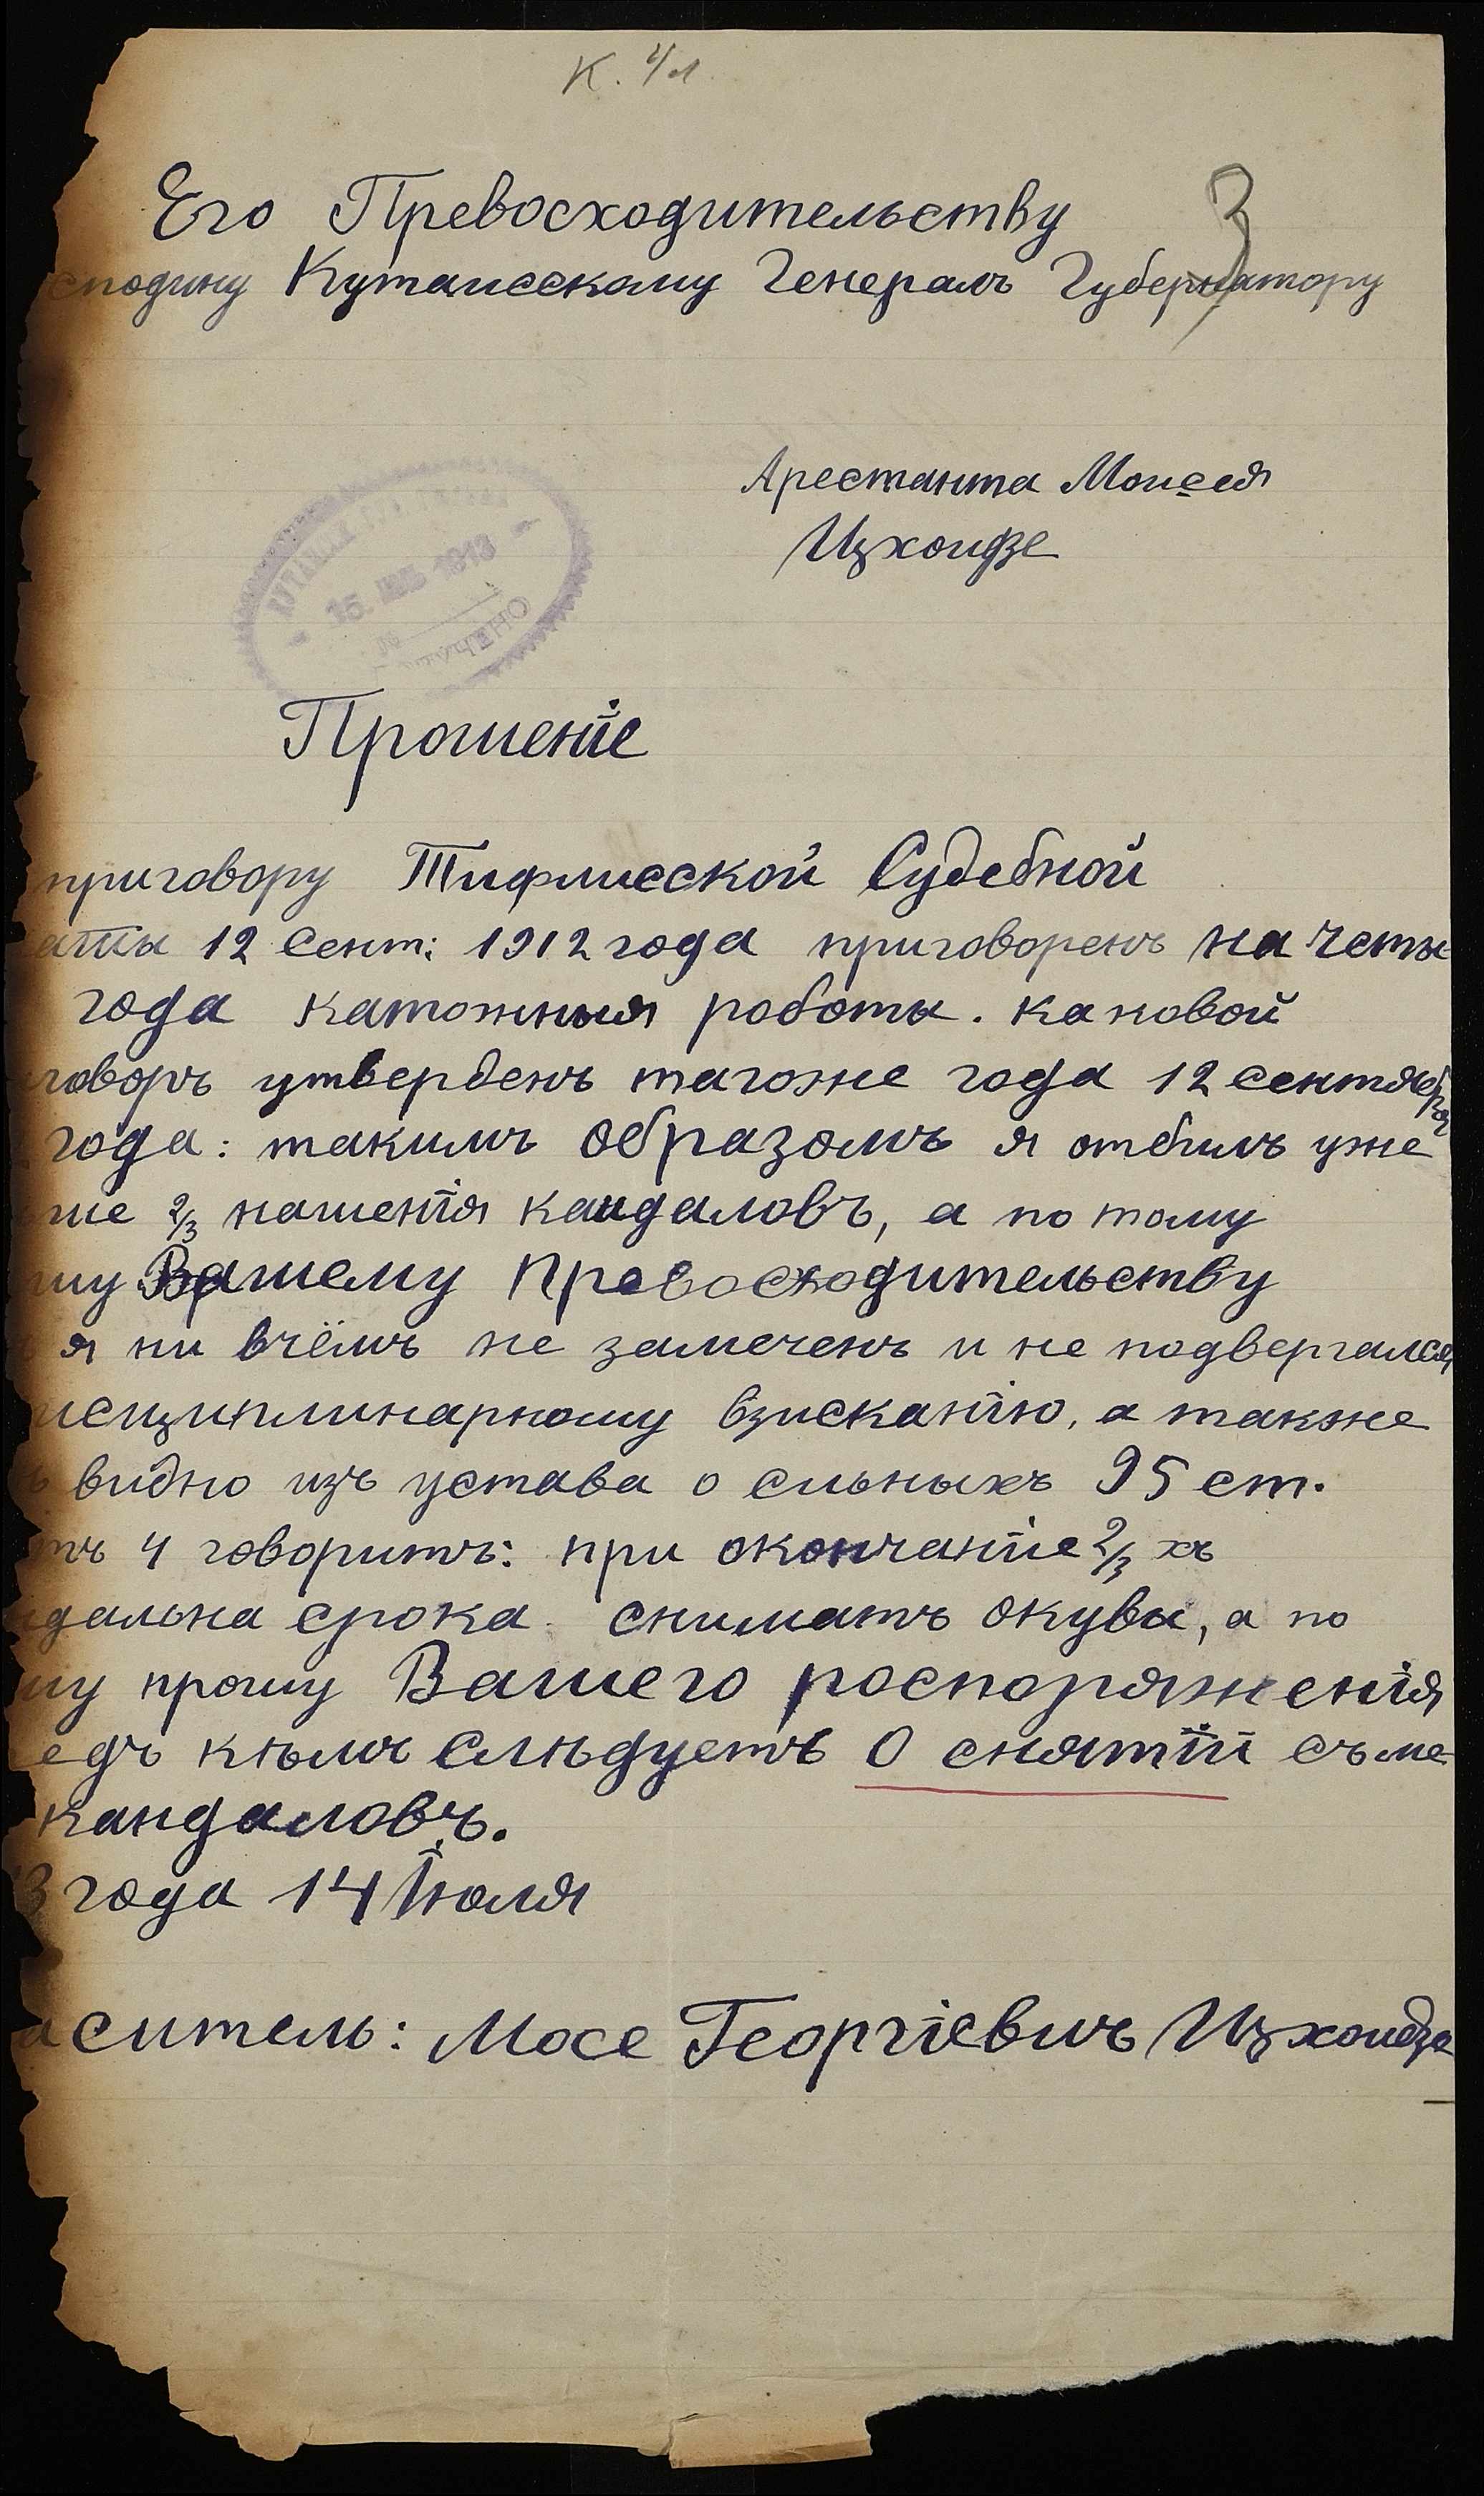 К. 4/л
Его Превосходительству
3
сподину Кутаисскому Генералъ Губернатору
Арестанта Моисея
Цхоидзе
15. 1913
Прошеніе
приговору Тифлисской Судебной
аты 12 Сент: 1912 года приговоренъ на четы
года катожныя роботы. каковой
говоръ утверденъ тагоже года 12 сентября
года: такимъ образомъ я отбылъ уже
ше 2/3 нашенія кандаловъ, а по тому
шу Вашему Превосходительству
я ни вчёмъ не замеченъ и не подвергался
исциплинарному взысканію, а также
ъ видно изъ устава о сыльныхъ 95 ст.
тъ 4 говоритъ: при окончаніе 2/3 хъ
ндальна срока снимать окувы, а по
му прошу Вашего роспоряженія
едъ къмъ слѣдуетъ О снятіи съ ме
кандаловъ.
3 года 14 Іюля
аситель: Мосе Георгіевичъ Цхоидзе